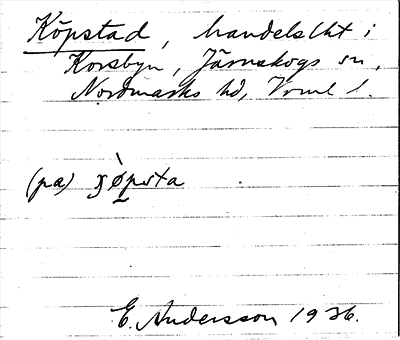 Köpstad, handelslht i
Korsbyn, Järnskogs sn,
Nordmarks hd, Vrml l.
(pa)
E. Andersson 1926.